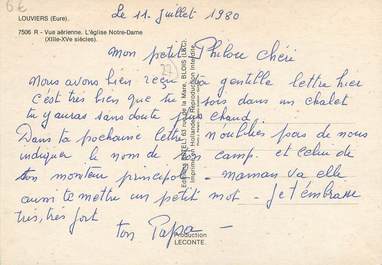 6€
LOUVIERS (Eure).
7506 R - Vue aérienne. L'église Notre-Dame
(XIIIe-XVe siècles).
Le 11 Juillet 1980
Mon petit Philou Chéri
Nous avons bien reçu ta gentille lettre hier
c'est très bien que tu sois dans un chalet
tu y auras sans doute plus chaud
Dans ta prochaine lettre n'oublies pas de nous
indiquer le nom de ton camp. et celui de
ton moniteur principal - maman va elle
aussi te mettre un petit mot - Je t'embrasse
très, très fort
ton Papa -
Production
LECONTE.
Imprimerie Hollande. Reproduction Interdite